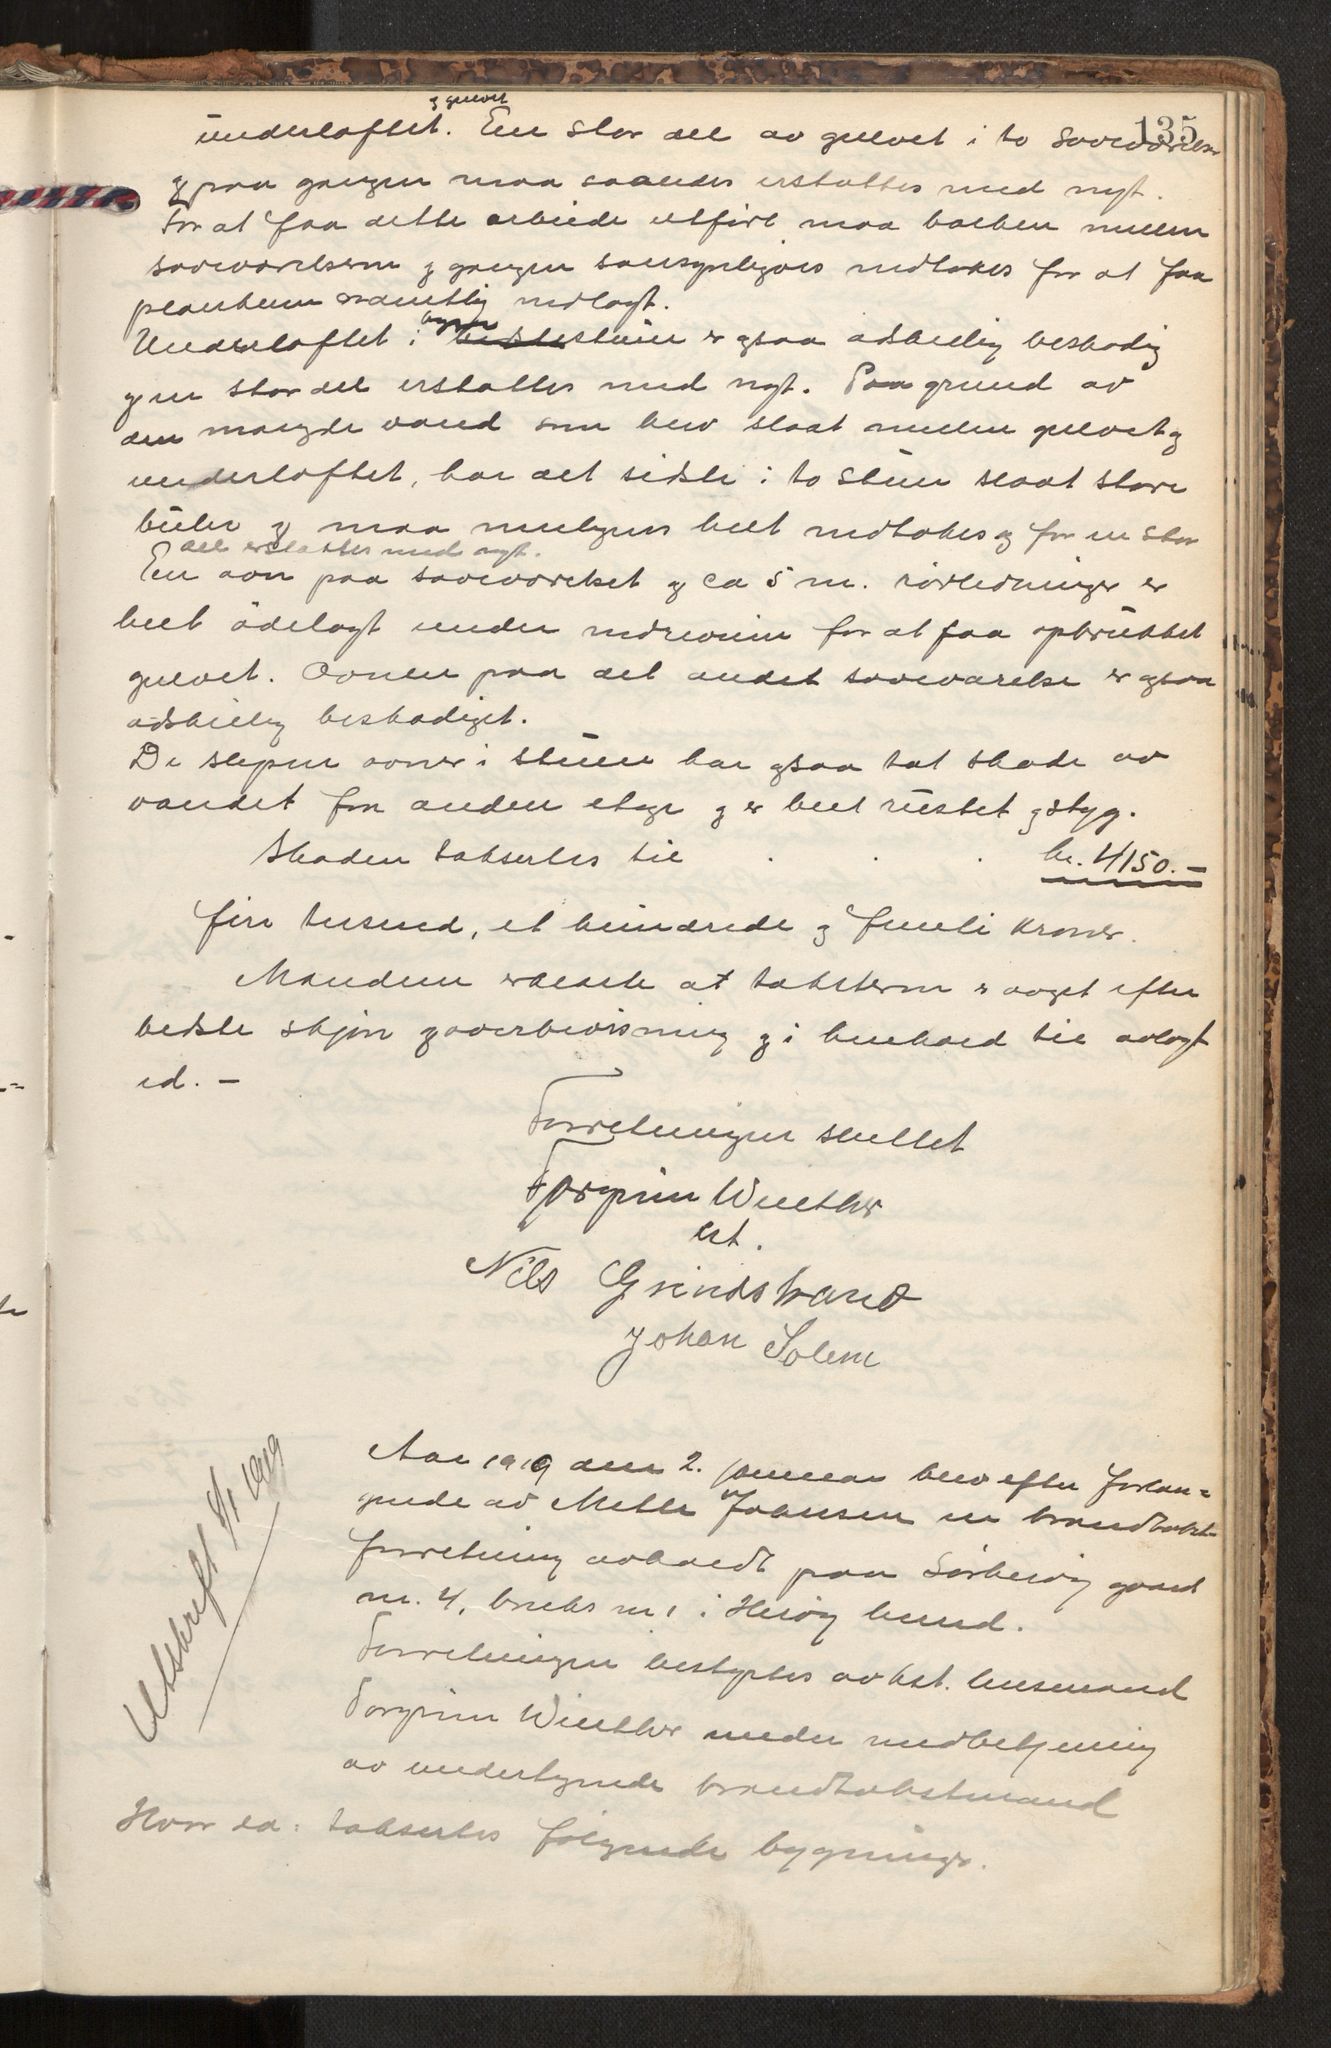 135
og gulvet
underloftet. En stor del av gulvet i to soveværelser
og paa gangen maa saaledes erstattes med nyt.
For at faa dette arbeide utført maa bælken mellem
soveværelserne og gangen sansynligvis nedtakes for at faa
plankene ordentlig nedlagt.
Underloftet i stuen er ogsaa adskillig beskadig
og en stor del erstattes med nyt. Paa grund av
den mængde vand som blev slaat mellem gulvet og
underloftet, har det sidste i to stuer slaat store
buler og maa muligens helt nedtakes og for en stor
del erstattes med nyt.
En ovn paa soveværelset og ca 5 m. rørledninger er
helt ödelagt under nedrivning for at faa opbrukket
gulvet. Ovnen paa det andet soveværelse er ogsaa
adskillig beskadiget.
De slepne ovner i stuen har ogsaa tat skade av
vandet fra anden etage og er helt rustet og styg.
Skaden takseres til . . . kr. 4150.-
fire tusend, et hundrede og femti kroner.
Mændene erklærte at taksterne er avgit efter
bedste skjøn og overbevisning og i henhold til avlagt
ed. -
Forretningen sluttet
Torgrim Winther
cst.
Nils Grindstrand
Johan Solem
Utskrift 8/1 1919
Aar 1919 den 2. januar blev efter forlan=
gende av Mette Johansen en brandtakst-
forretning avholdt paa Sørherøy gaard
nr. 4, bruks nr 1 i Herøy herred.
Forretningen bestyrtes av kst. lensmand
Torgrim Winther under medbetjening
av undertegnede brandtakstmænd
Hvor da: takseres følgende bygninger.